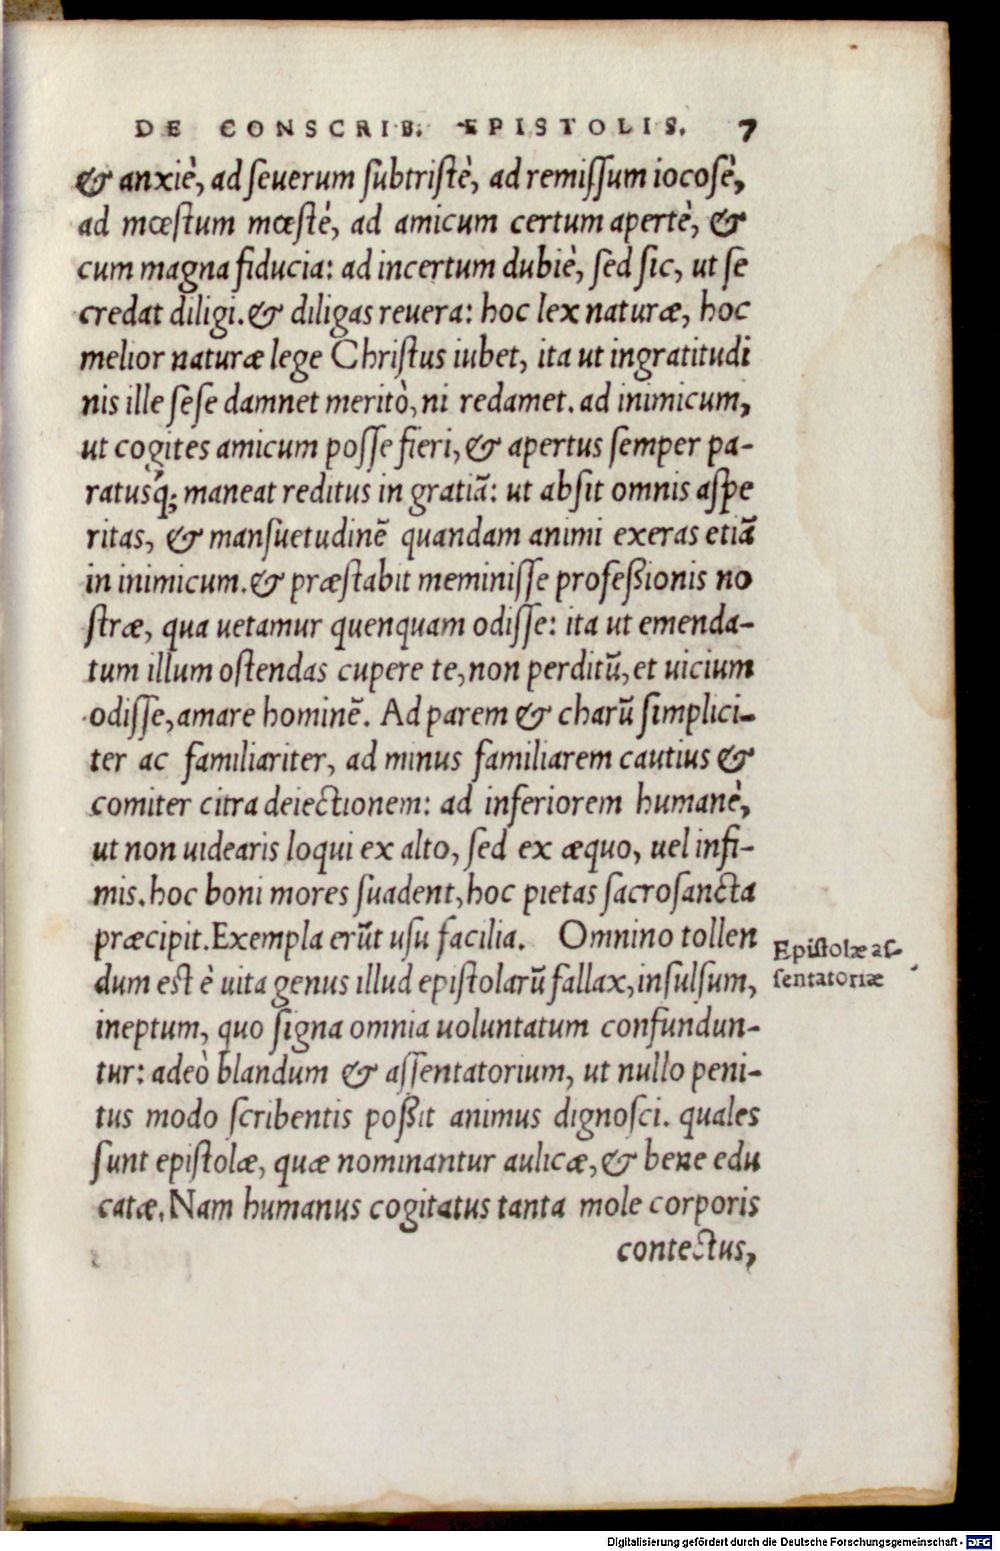 DE CONSCRIB. EPISTOLIS. 7
& anxiè, ad ſeuerum ſubtriſtè, ad remiſſum iocoſè,
ad mœſtum mœſtè, ad amicum certum apertè, &
cum magna fiducia: ad incertum dubiè, ſed ſic, ut ſe
credat diligi. & diligas reuera: hoc lex naturæ, hoc
melior naturæ lege Chriſtus iubet, ita ut ingratitudi
nis ille ſeſe damnet meritò, ni redamet. ad inimicum,
ut cogites amicum poſſe fieri, & apertus ſemper pa-
ratusq́; maneat reditus in gratiã: ut abſit omnis aſpe
ritas, & manſuetudinẽ quandam animi exeras etiã
in inimicum. & præſtabit meminiſſe profeßionis no
ſtræ, qua uetamur quenquam odiſſe: ita ut emenda-
tum illum oſtendas cupere te, non perditũ, et uicium
odiſſe, amare hominẽ. Ad parem & charũ ſimplici-
ter ac familiariter, ad minus familiarem cautius &
comiter citra deiectionem: ad inferiorem humanè,
ut non uidearis loqui ex alto, ſed ex æquo, uel infi-
mis. hoc boni mores ſuadent, hoc pietas ſacroſancta
præcipit. Exempla erũt uſu facilia. Omnino tollen
dum est è uita genus illud epiſtolarũ fallax, inſulſum,
ineptum, quo ſigna omnia uoluntatum confundun-
tur: adeò blandum & aſſentatorium, ut nullo peni-
tus modo ſcribentis poßit animus dignoſci. quales
ſunt epiſtolæ, quæ nominantur aulicæ, & bene edu
catæ. Nam humanus cogitatus tanta mole corporis
contectus,
Epiſtolæ aſ-
ſentatoriæ
Digitalisierung gefördert durch die Deutsche Forschungsgemeinschaft - DFG